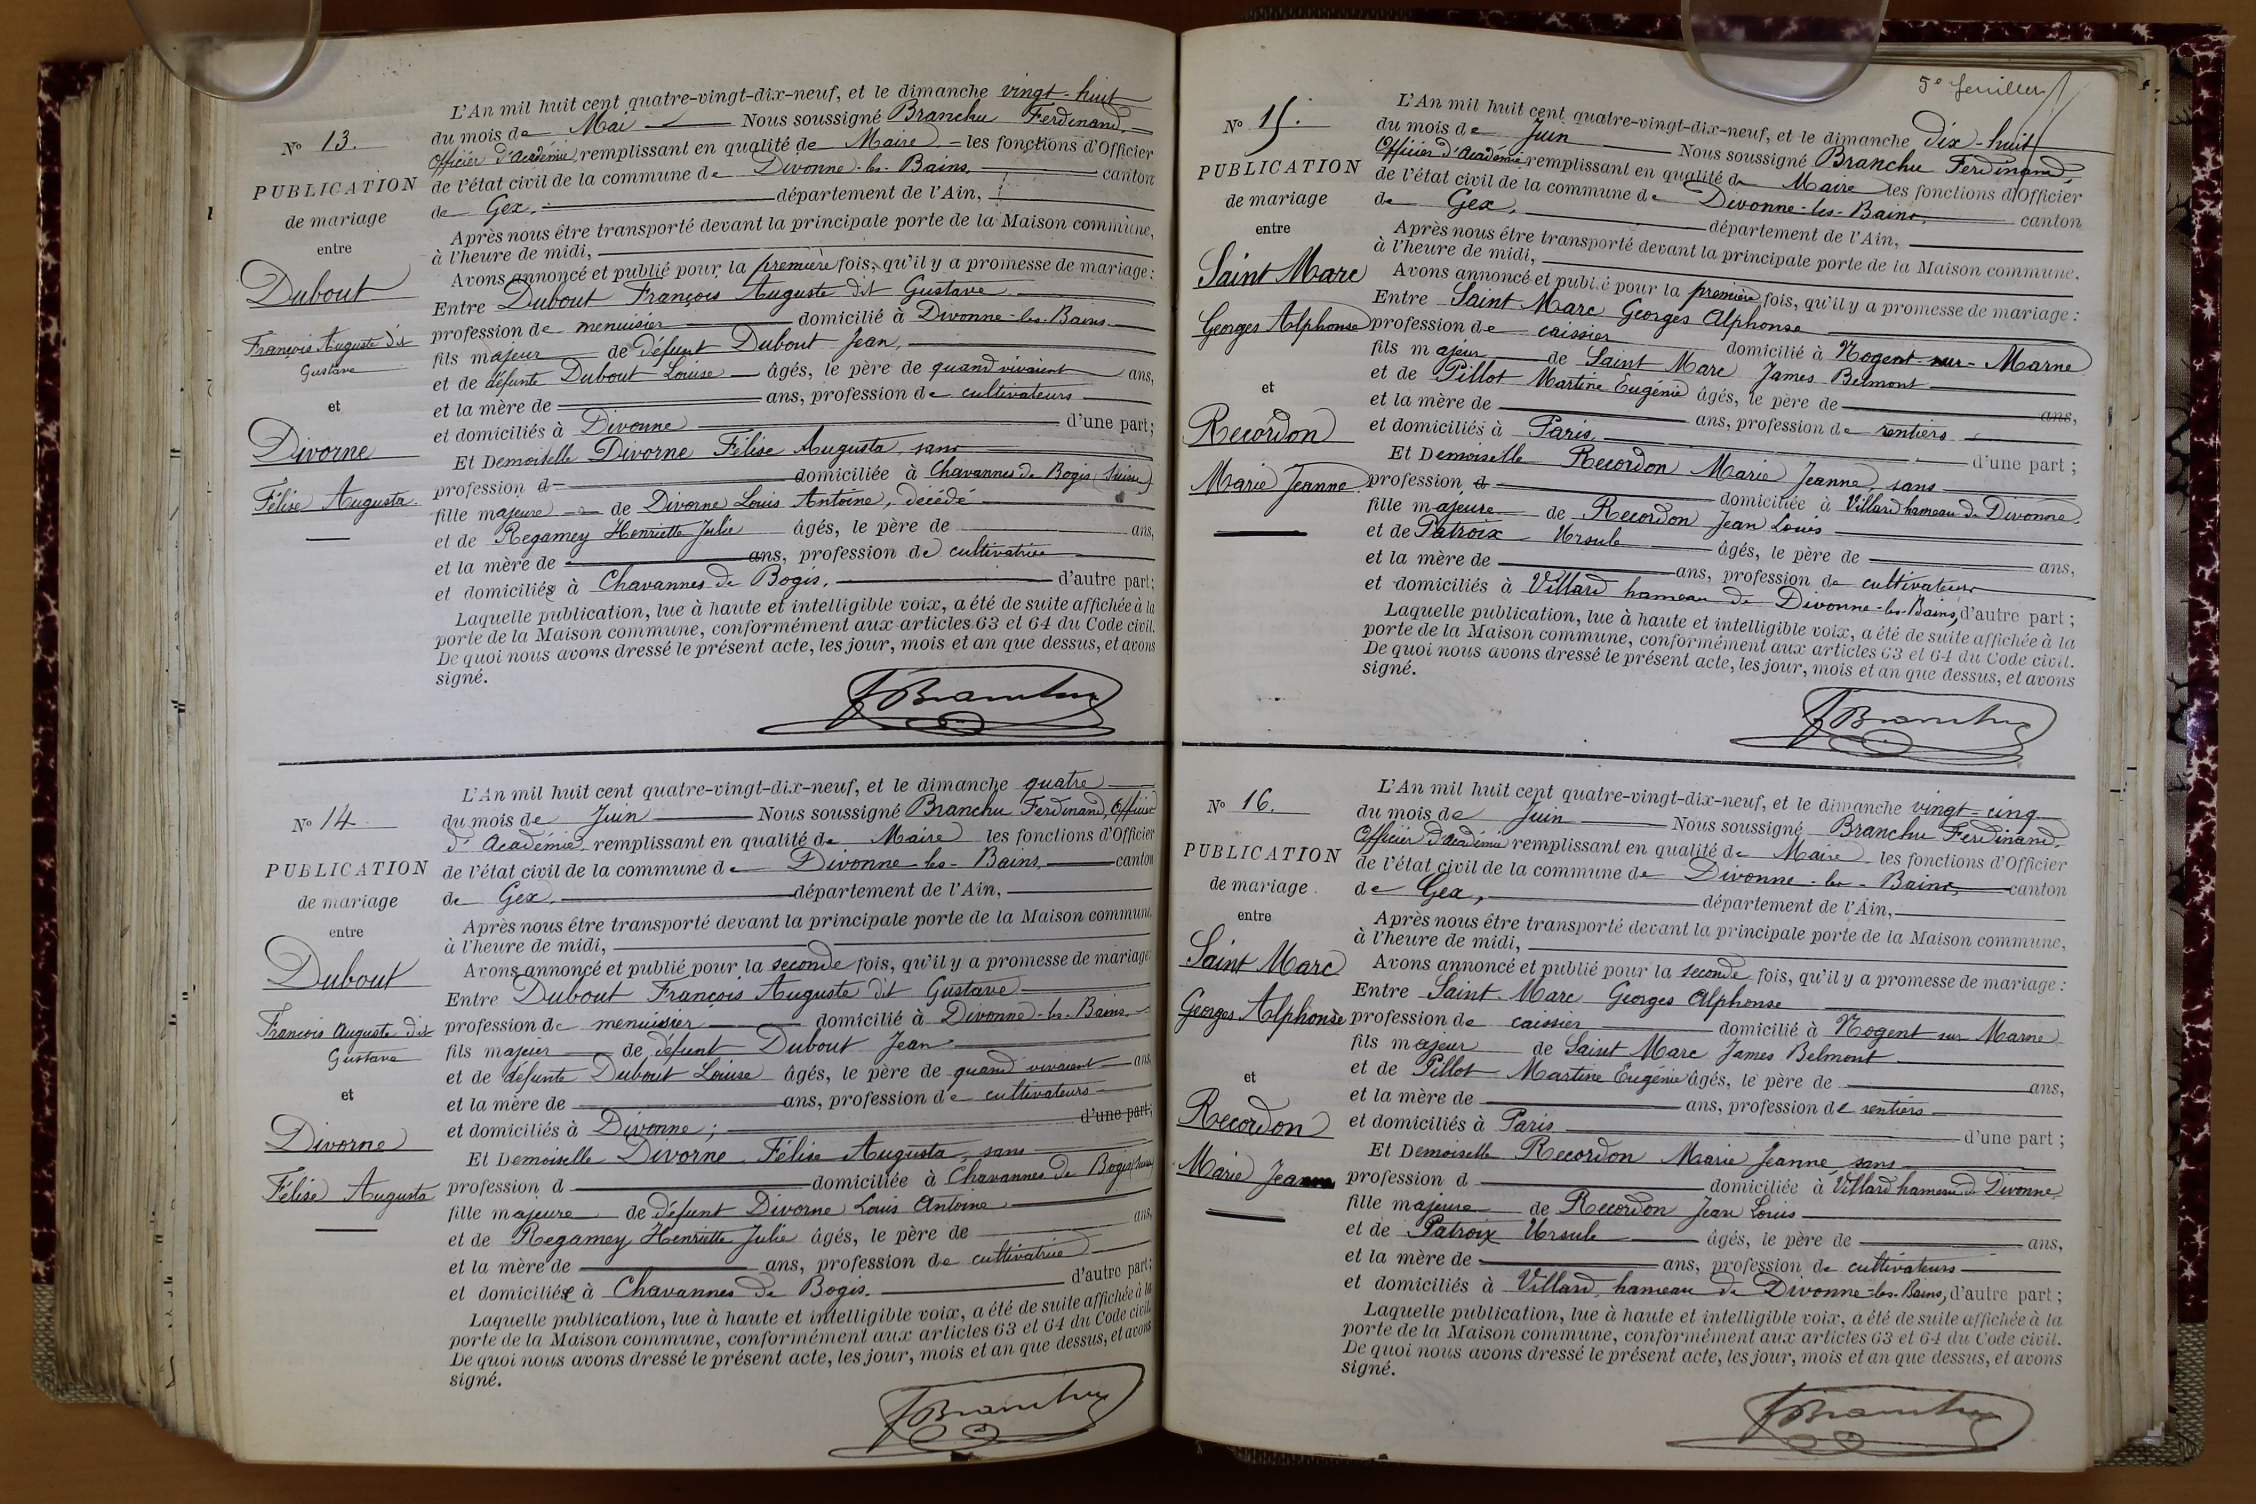 N° 13.
PUBLICATION
de mariage
entre
Dubout
François Auguste dit
Gustave
et
Divorne
Félise Augusta
L'An mil huit cent quatre-vingt-dix-neuf, et le dimanche vingt-huit
du mois de Mai Nous soussigné Branchu Ferdinand,
Officier d'Académie remplissant en qualité de Maire les fonctions d'Officier
de l'état civil de la commune de Divonne-les-Bains, canton
de Gex, département de l'Ain,
Après nous être transporté devant la principale porte de la Maison commune,
à l'heure de midi,
Avons annoncé et publié pour la première fois, qu'il y a promesse de mariage :
Entre Dubout François Auguste dit Gustave
profession de menuisier domicilié à Divonne-les-Bains
fils majeur de défunt Dubout Jean,
et de défunte Dubout Louise âgés, le père de quand vivaient ans,
et la mère de ans, profession de cultivateurs
et domiciliés à Divonne d'une part;
Et Demoiselle Divorne Félise Augusta, sans
profession d domiciliée à Chavannes de Bogis (Suisse)
fille majeure de Divorne Louis Antoine, décédé
et de Regamey Henriette Julie âgés, le père de ans,
et la mère de ans, profession de cultivatrice
et domiciliés à Chavannes de Bogis, d'autre part;
Laquelle publication, lue à haute et intelligible voix, a été de suite affichée à la
porte de la Maison commune, conformément aux articles 63 et 64 du Code civil.
De quoi nous avons dressé le présent acte, les jour, mois et an que dessus, et avons
signé.
F Branchu
N° 14
PUBLICATION
de mariage
entre
Dubout
François Auguste dit
Gustave
et
Divorne
Félise Augusta
L'An mil huit cent quatre-vingt-dix-neuf, et le dimanche quatre
du mois de Juin Nous soussigné Branchu Ferdinand, Officier
d'Académie remplissant en qualité de Maire les fonctions d'Officier
de l'état civil de la commune de Divonne-les-Bains, canton
de Gex, département de l'Ain,
Après nous être transporté devant la principale porte de la Maison commune,
à l'heure de midi,
Avons annoncé et publié pour la seconde fois, qu'il y a promesse de mariage:
Entre Dubout François Auguste dit Gustave
profession de menuisier domicilié à Divonne-les-Bains
fils majeur de défunt Dubout Jean
et de défunte Dubout Louise âgés, le père de quand vivaient ans,
et la mère de ans, profession de cultivateurs
et domiciliés à Divonne; d'une part;
Et Demoiselle Divorne Félise Augusta, sans
profession d domiciliée à Chavannes de Bogis (Suisse)
fille majeure de défunt Divorne Louis Antoine
et de Regamey Henriette Julie âgés, le père de ans,
et la mère de ans, profession de cultivatrice
et domiciliée à Chavannes de Bogis. d'autre part;
Laquelle publication, lue à haute et intelligible voix, a été de suite affichée à la
porte de la Maison commune, conformément aux articles 63 et 64 du Code civil.
De quoi nous avons dressé le présent acte, les jour, mois et an que dessus, et avons
signé.
F Branchu
5e feuillet
N° 15.
PUBLICATION
de mariage
entre
Saint Marc
Georges Alphonse
et
Recordon
Marie Jeanne
L'An mil huit cent quatre-vingt-dix-neuf, et le dimanche dix-huit
du mois de Juin Nous soussigné Branchu Ferdinand,
Officier d'Académie remplissant en qualité de Maire les fonctions d'Officier
de l'état civil de la commune de Divonne-les-Bains, canton
de Gex, département de l'Ain,
Après nous être transporté devant la principale porte de la Maison commune,
à l'heure de midi,
Avons annoncé et publié pour la première fois, qu'il y a promesse de mariage :
Entre Saint Marc Georges Alphonse
profession de caissier domicilié à Nogent-sur-Marne
fils majeur de Saint Marc James Belmont
et de Pillot Martine Eugénie âgés, le père de ans,
et la mère de ans, profession de rentiers
et domiciliés à Paris d'une part ;
Et Demoiselle Recordon Marie Jeanne, sans
profession d domiciliée à Villard hameau de Divonne
fille majeure de Recordon Jean Louis
et de Patroix Ursule âgés, le père de ans,
et la mère de ans, profession de cultivateurs
et domiciliés à Villard hameau de Divonne-les-Bains, d'autre part ;
Laquelle publication, lue à haute et intelligible voix, a été de suite affichée à la
porte de la Maison commune, conformément aux articles 63 et 64 du Code civil.
De quoi nous avons dressé le présent acte, les jour, mois et an que dessus, et avons
signé.
F Branchu
N° 16.
PUBLICATION
de mariage
entre
Saint Marc
Georges Alphonse
et
Recordon
Marie Jeanne
L'An mil huit cent quatre-vingt-dix-neuf, et le dimanche vingt-cinq
du mois de Juin Nous soussigné Branchu Ferdinand,
Officier d'Académie remplissant en qualité de Maire les fonctions d'Officier
de l'état civil de la commune de Divonne-les-Bains, canton
de Gex, département de l'Ain,
Après nous être transporté devant la principale porte de la Maison commune,
à l'heure de midi,
Avons annoncé et publié pour la seconde fois, qu'il y a promesse de mariage :
Entre Saint Marc Georges Alphonse
profession de caissier domicilié à Nogent sur Marne
fils majeur de Saint Marc James Belmont
et de Pillot Martine Eugénie âgés, le père de ans,
et la mère de ans, profession de rentiers
et domiciliés à Paris d'une part ;
Et Demoiselle Recordon Marie Jeanne, sans
profession d domiciliée à Villard hameau de Divonne
fille majeure de Recordon Jean Louis
et de Patroix Ursule âgés, le père de ans,
et la mère de ans, profession de cultivateurs
et domiciliés à Villard, hameau de Divonne-les-Bains, d'autre part ;
Laquelle publication, lue à haute et intelligible voix, a été de suite affichée à la
porte de la Maison commune, conformément aux articles 63 et 64 du Code civil.
De quoi nous avons dressé le présent acte, les jour, mois et an que dessus, et avons
signé.
F Branchu